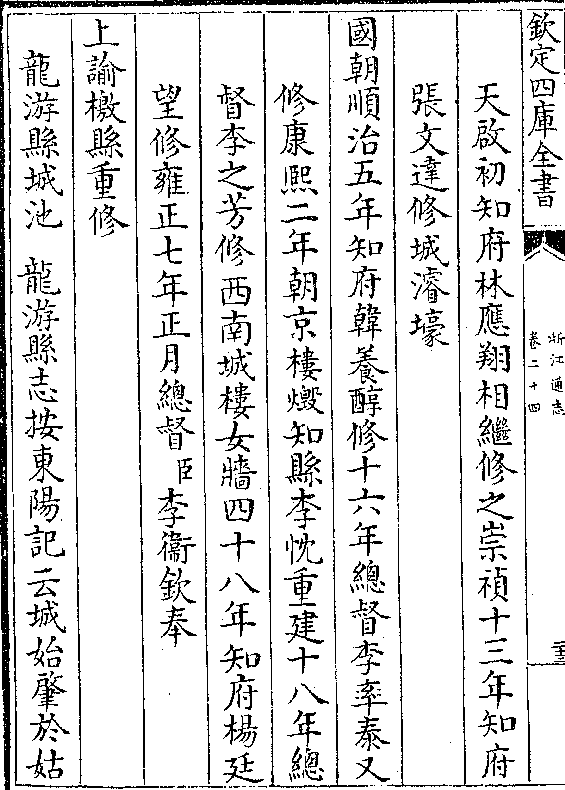 欽定四庫全書
浙江通志
卷二十四
天啟初知府林應翔相繼修之崇禎十三年知府
張文達修城濬壕
國朝順治五年知府韓養醇修十六年總督李率泰又
修康熙二年朝京樓燬知縣李忱重建十八年總
督李之芳修西南城樓女牆四十八年知府楊廷
望修雍正七年正月總督臣李衞欽奉
上諭檄縣重修
龍游縣城池 龍游縣志按東陽記云城始肇於姑